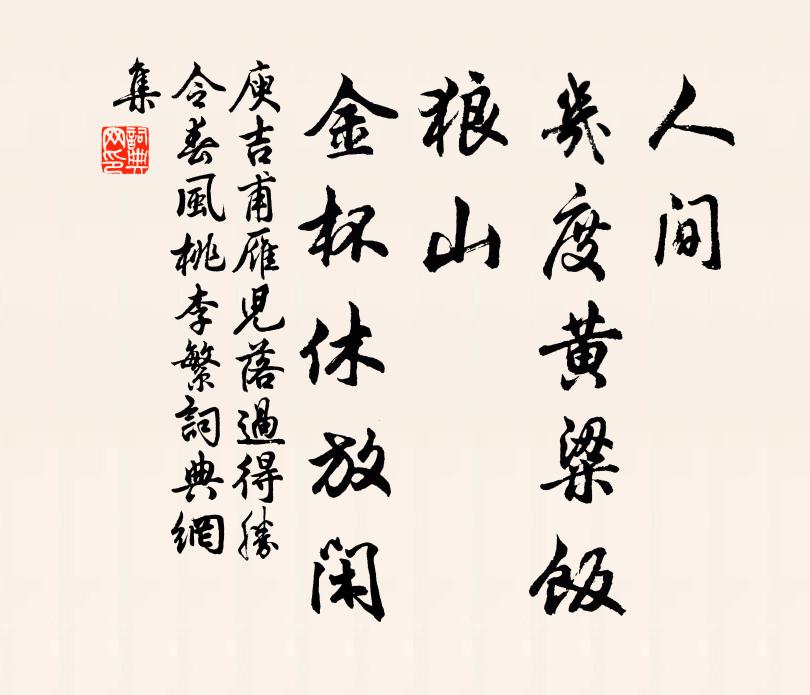 人间
几度黄粱饭
狼山
金杯休放闲
庾吉甫雁儿落过得胜
令春风桃李繁词典網
集
詞典
网印